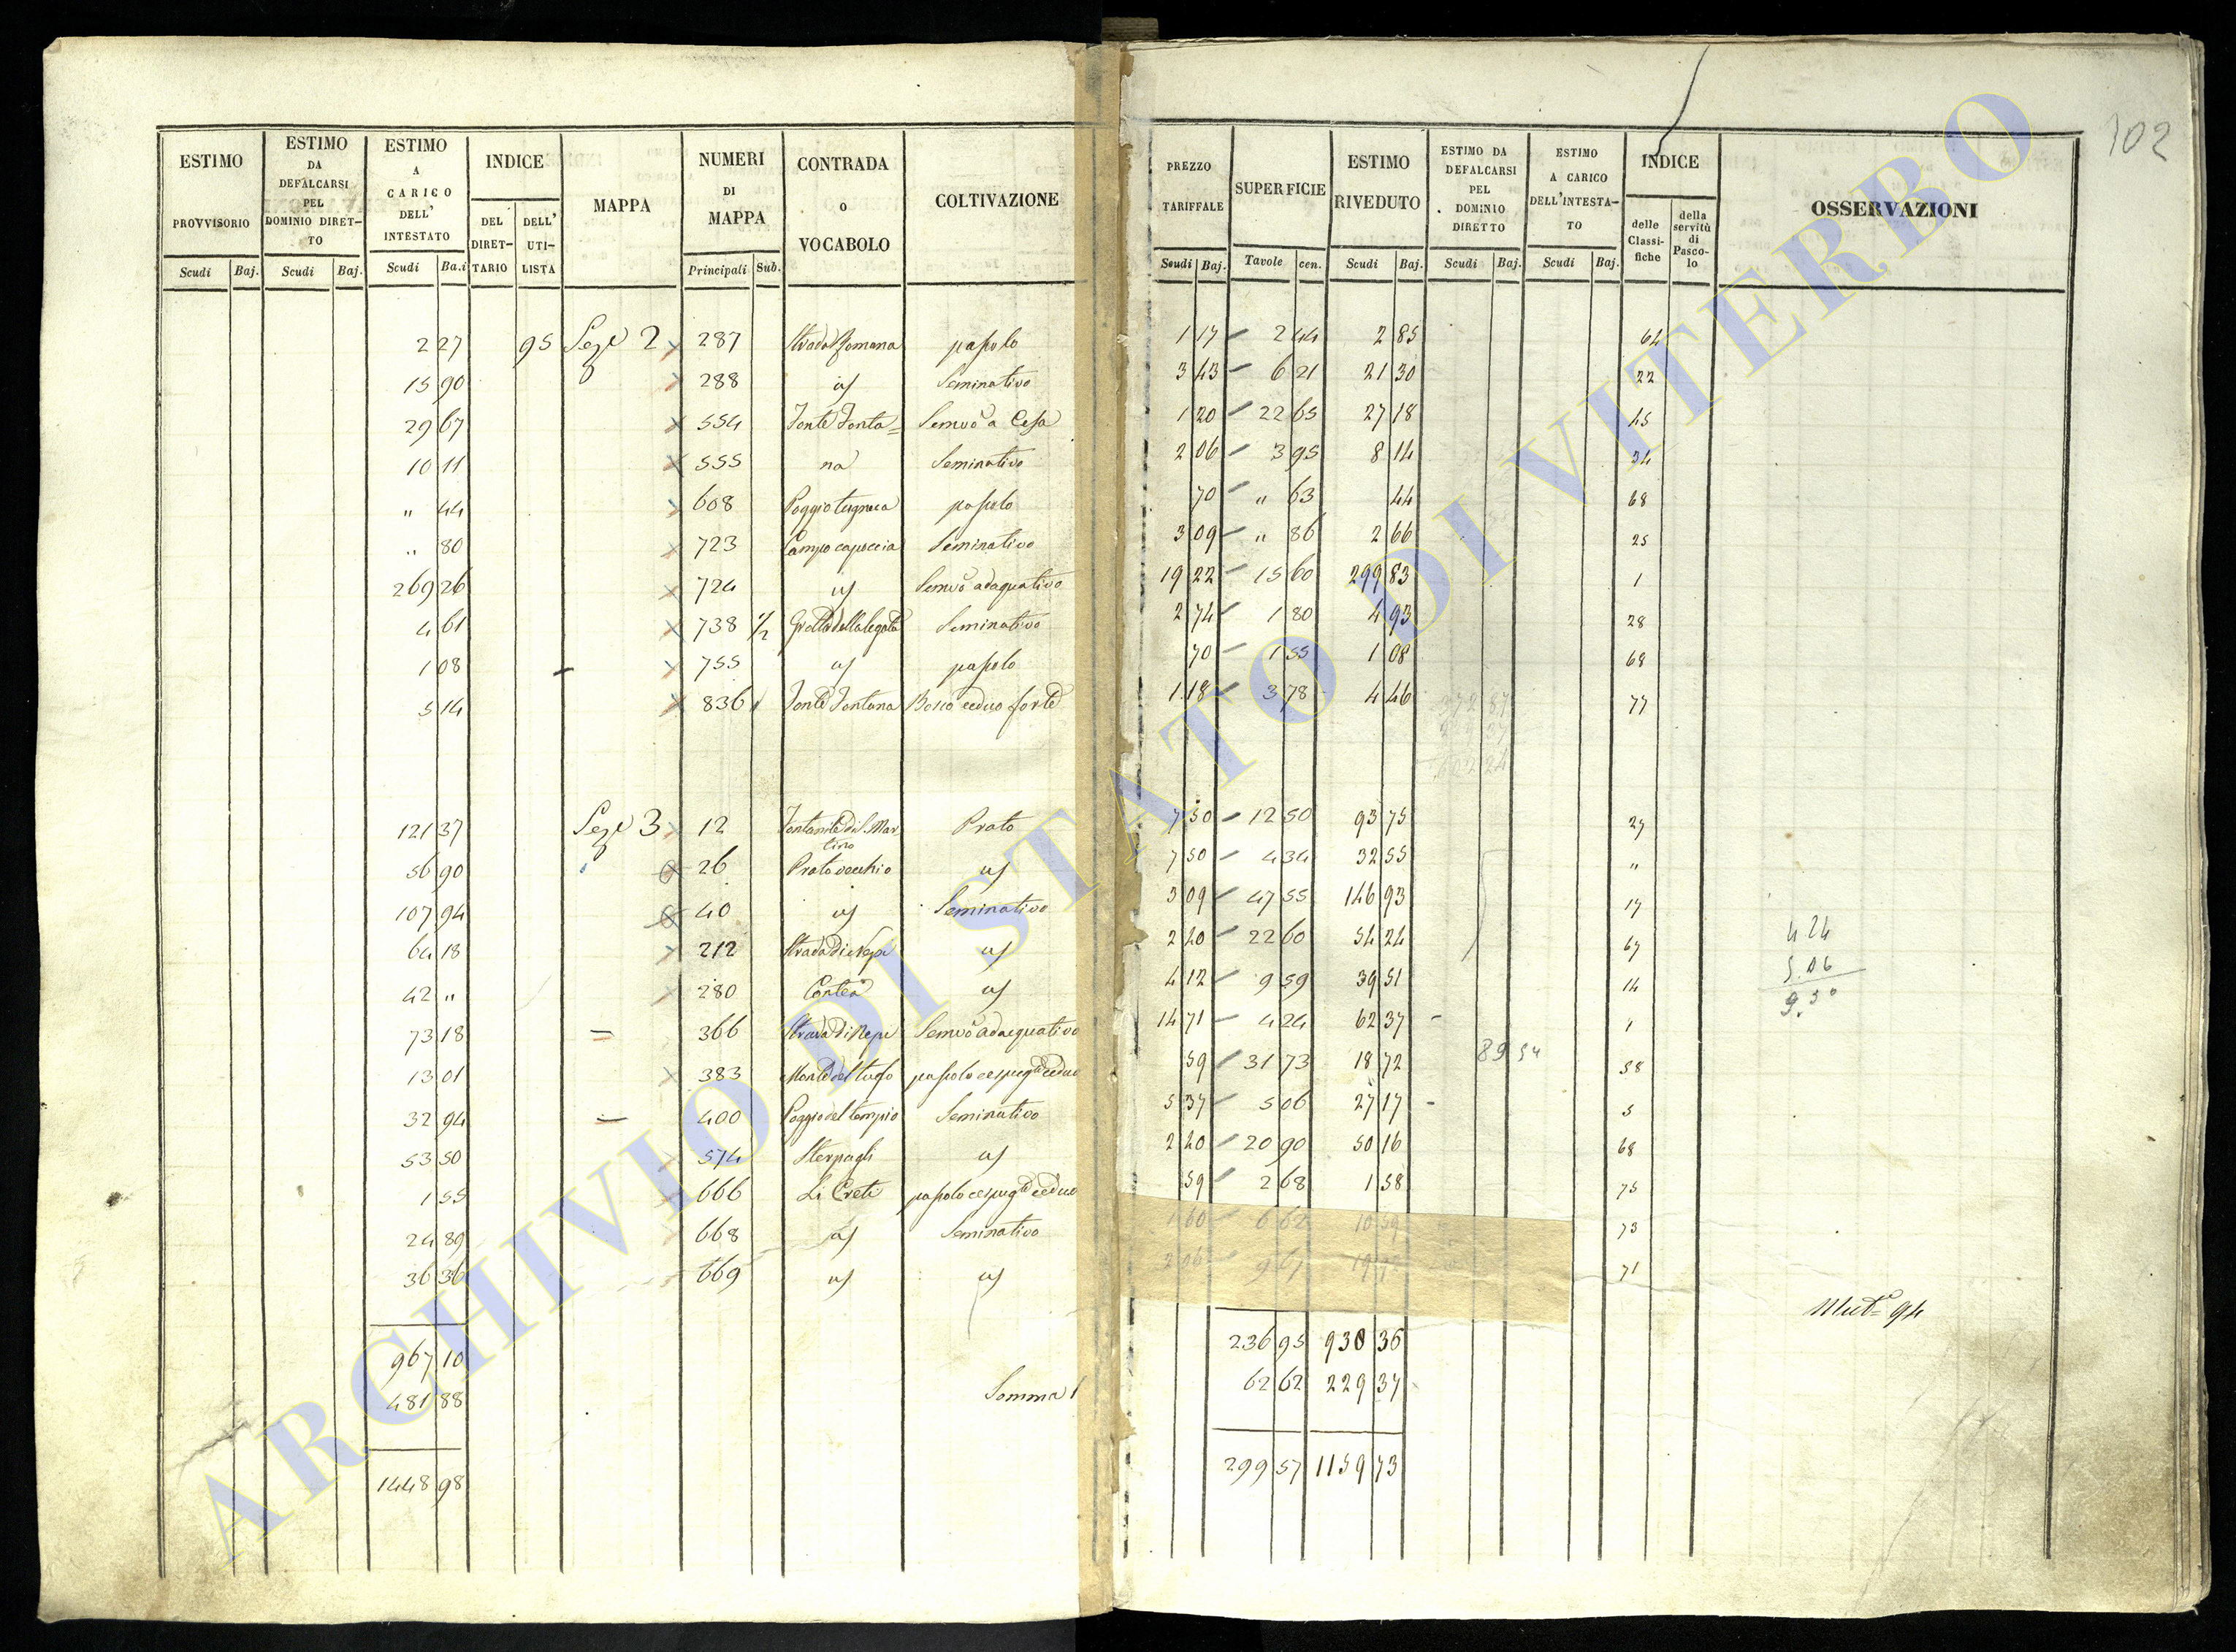 102
ESTIMO PROVVISORIO | ESTIMO DA DEFALCARSI PEL DOMINIO DIRETTO | ESTIMO A CARICO DELL' INTESTATO | INDICE DEL DIRETTARIO | DELL' UTILISTA | MAPPA | NUMERI DI MAPPA | CONTRADA O VOCABOLO | COLTIVAZIONE | PREZZO TARIFFALE | SUPERFICIE | ESTIMO RIVEDUTO | ESTIMO DA DEFALCARSI PEL DOMINIO DIRETTO | ESTIMO A CARICO DELL'INTESTATO | INDICE delle Classifiche | della servitù di Pascolo | OSSERVAZIONI
Scudi | Baj. | Scudi | Baj. | Scudi | Baj. | Principali | Sub. | Scudi | Baj. | Tavole | cen. | Scudi | Baj. | Scudi | Baj. | Scudi | Baj.
2 27 | 95 | Sez.e 2 | 287 | Strada Romana | pascolo | 1 17 | 2 44 | 2 85 | 64
15 90 | 288 | id | Seminativo | 3 43 | 6 21 | 21 30 | 22
29 67 | 554 | Fonte Fonta= | Semvo a Cesa | 1 20 | 22 65 | 27 18 | 45
10 11 | 555 | na | Seminativo | 2 06 | 3 95 | 8 14 | 34
" 44 | 608 | pascolo | 70 | " 63 | 44 | 68
" 80 | 723 | Campo capoccia | Seminativo | 3 09 | " 86 | 2 66 | 25
269 26 | 724 | id | Semvo adaquativo | 19 22 | 15 60 | 299 83 | 1
4 61 | 738 | 1/2 | Seminativo | 2 74 | 1 80 | 4 93 | 28
1 08 | 755 | id | pascolo | 70 | 1 55 | 1 08 | 68
5 14 | 836 | Fonte Fontana | Bosco ceduo forte | 1 18 | 3 78 | 4 46 | 77
121 37 | Sez.e 3 | 12 | Fontanile di S. Mar | Prato | 7 50 | 12 50 | 93 75 | 27
tino
56 90 | 26 | Prato vecchio | id | 7 50 | 4 34 | 32 55 | "
107 94 | 40 | id | Seminativo | 3 09 | 47 55 | 146 93 | 17
64 18 | 212 | Strada di Nepi | id | 2 40 | 22 60 | 54 24 | 67
42 " | 280 | id | 4 12 | 9 59 | 39 51 | 14
73 18 | 366 | Strada di Nepi | Semvo adacquativo | 14 71 | 4 24 | 62 37
13 01 | 383 | Monte del tufo | pascolo cespug.to ceduo | 59 | 31 73 | 18 72 | 58
32 94 | 400 | Poggio del tempio | Seminativo | 5 37 | 5 06 | 27 17 | 5
53 50 | 574 | Sterpagli | id | 2 40 | 20 90 | 50 16 | 68
1 55 | 666 | Li Creti | pascolo cespug.to ceduo | 59 | 2 68 | 1 58 | 75
24 89 | 668 | id | Seminativo | 1 60 | 6 62 | 10 59 | 73
36 36 | 669 | id | id | 2 06 | 9 67 | 71
4 24
5.06
9.30
89 54
Mut.e 94
967 10 | 236 95 | 930 36
481 88 | Somma | 62 62 | 229 37
1448 98 | 299 57 | 1159 73
ARCHIVIO DI STATO DI VITERBO